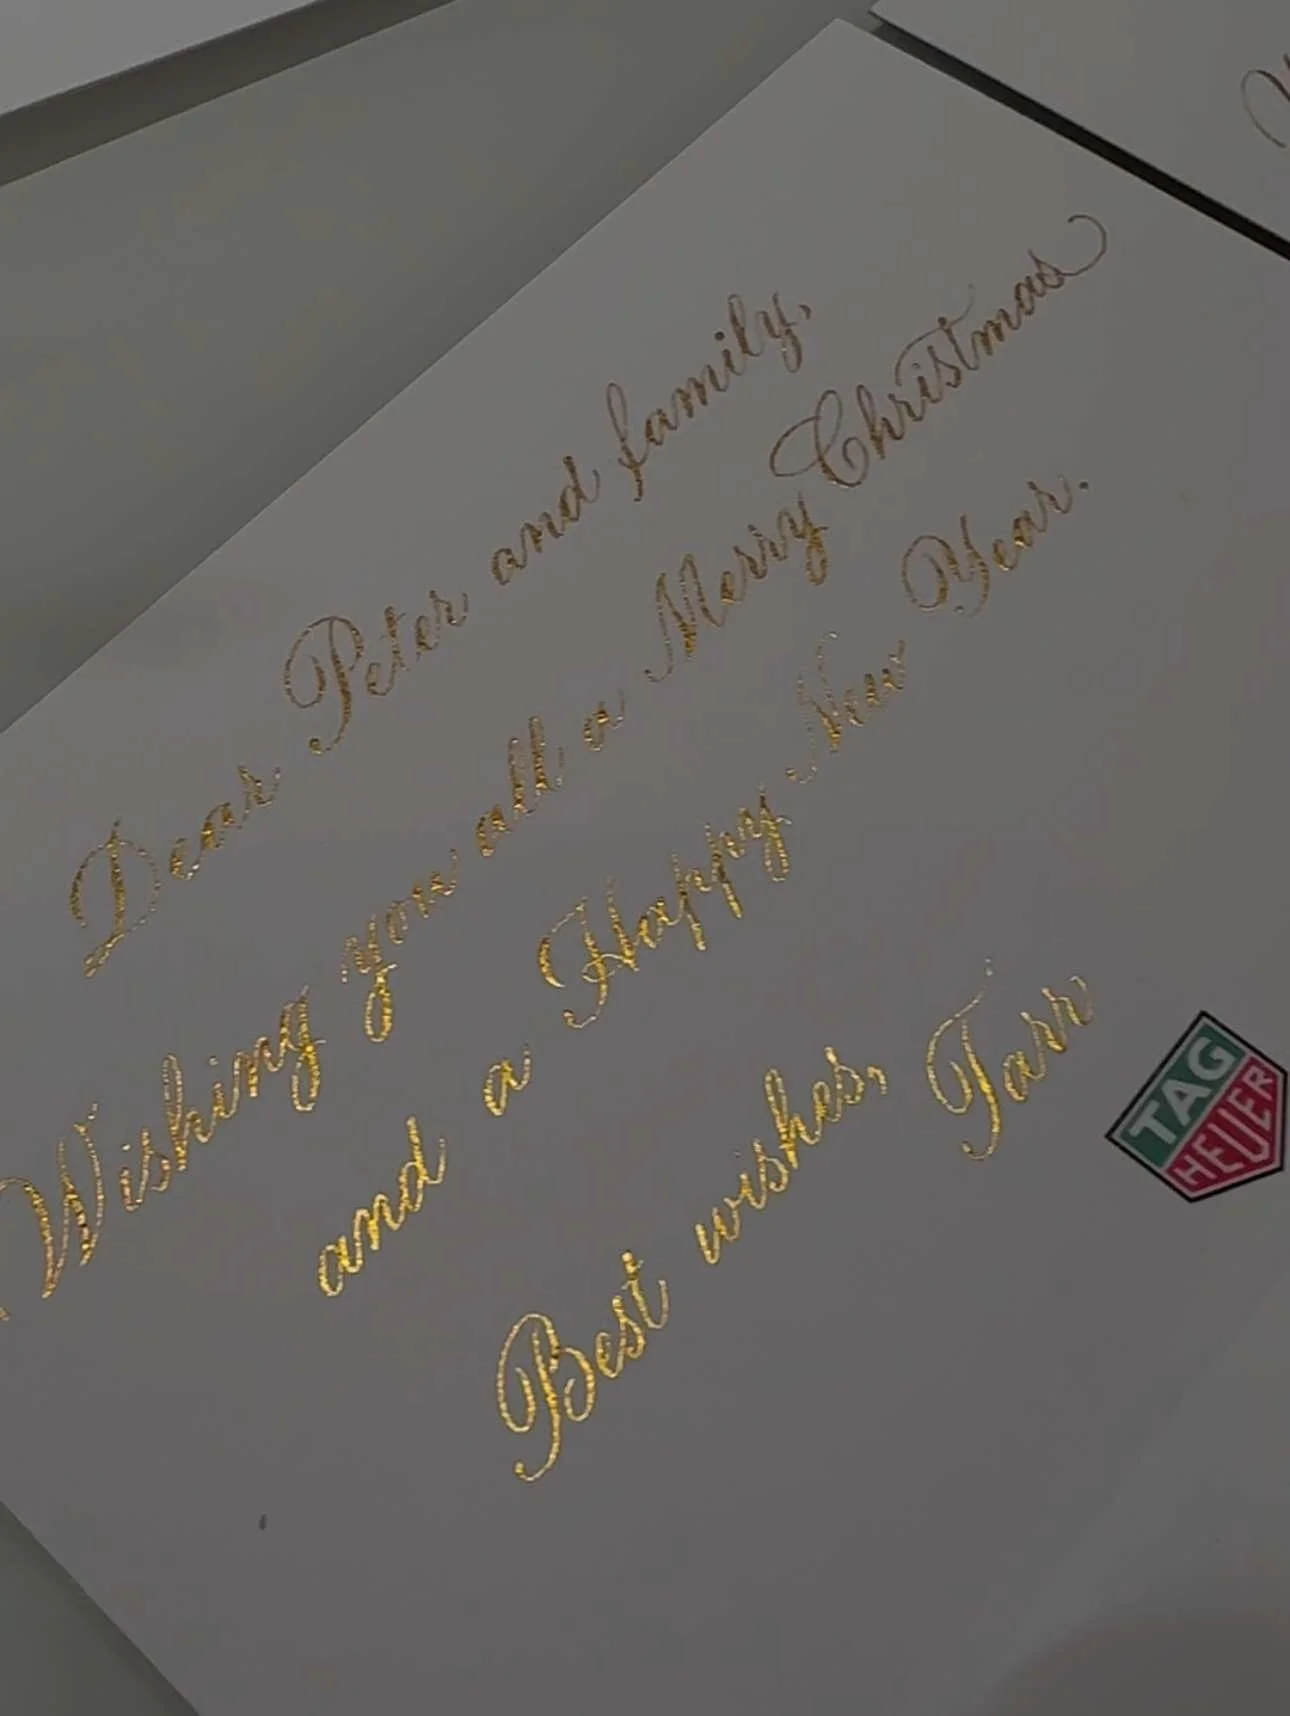 Dear Peter and family,
Wishing you all a Merry Christmas
and a Happy New Year.
Best wishes, Tarr
TAG
HEUER